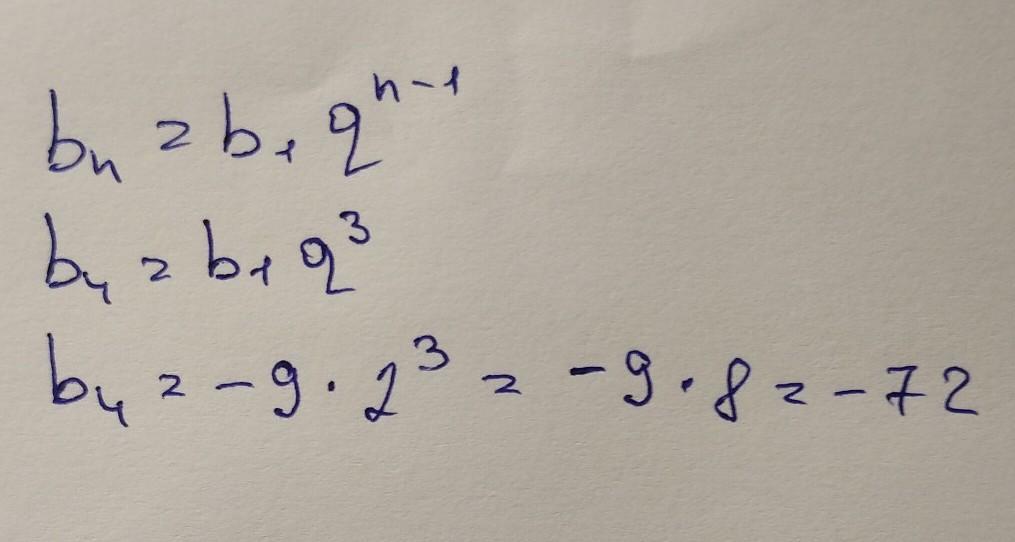 bₙ = b₁ qⁿ⁻¹
b₄ = b₁ q³
b₄ = -9 · 2³ = -9 · 8 = -72